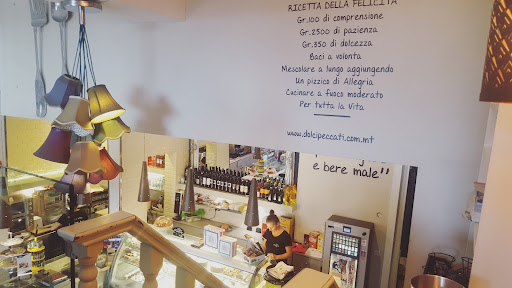 RICETTA DELLA FELICITÀ
Gr.100 di comprensione
Gr.2500 di pazienza
Gr.350 di dolcezza
Baci a volontà
Mescolare a lungo aggiungendo
Un pizzico di Allegria
Cucinare a fuoco moderato
Per tutta la Vita
www.dolcipeccati.com.mt
e bere male"